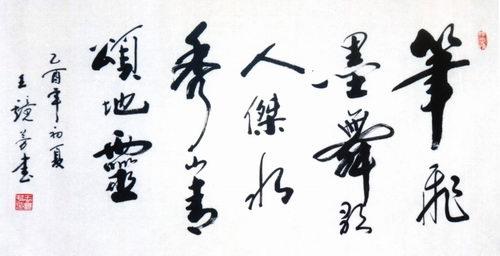 筆飛
墨舞歌
人傑水
秀山青
頌地靈
乙酉年初夏
王 芳書